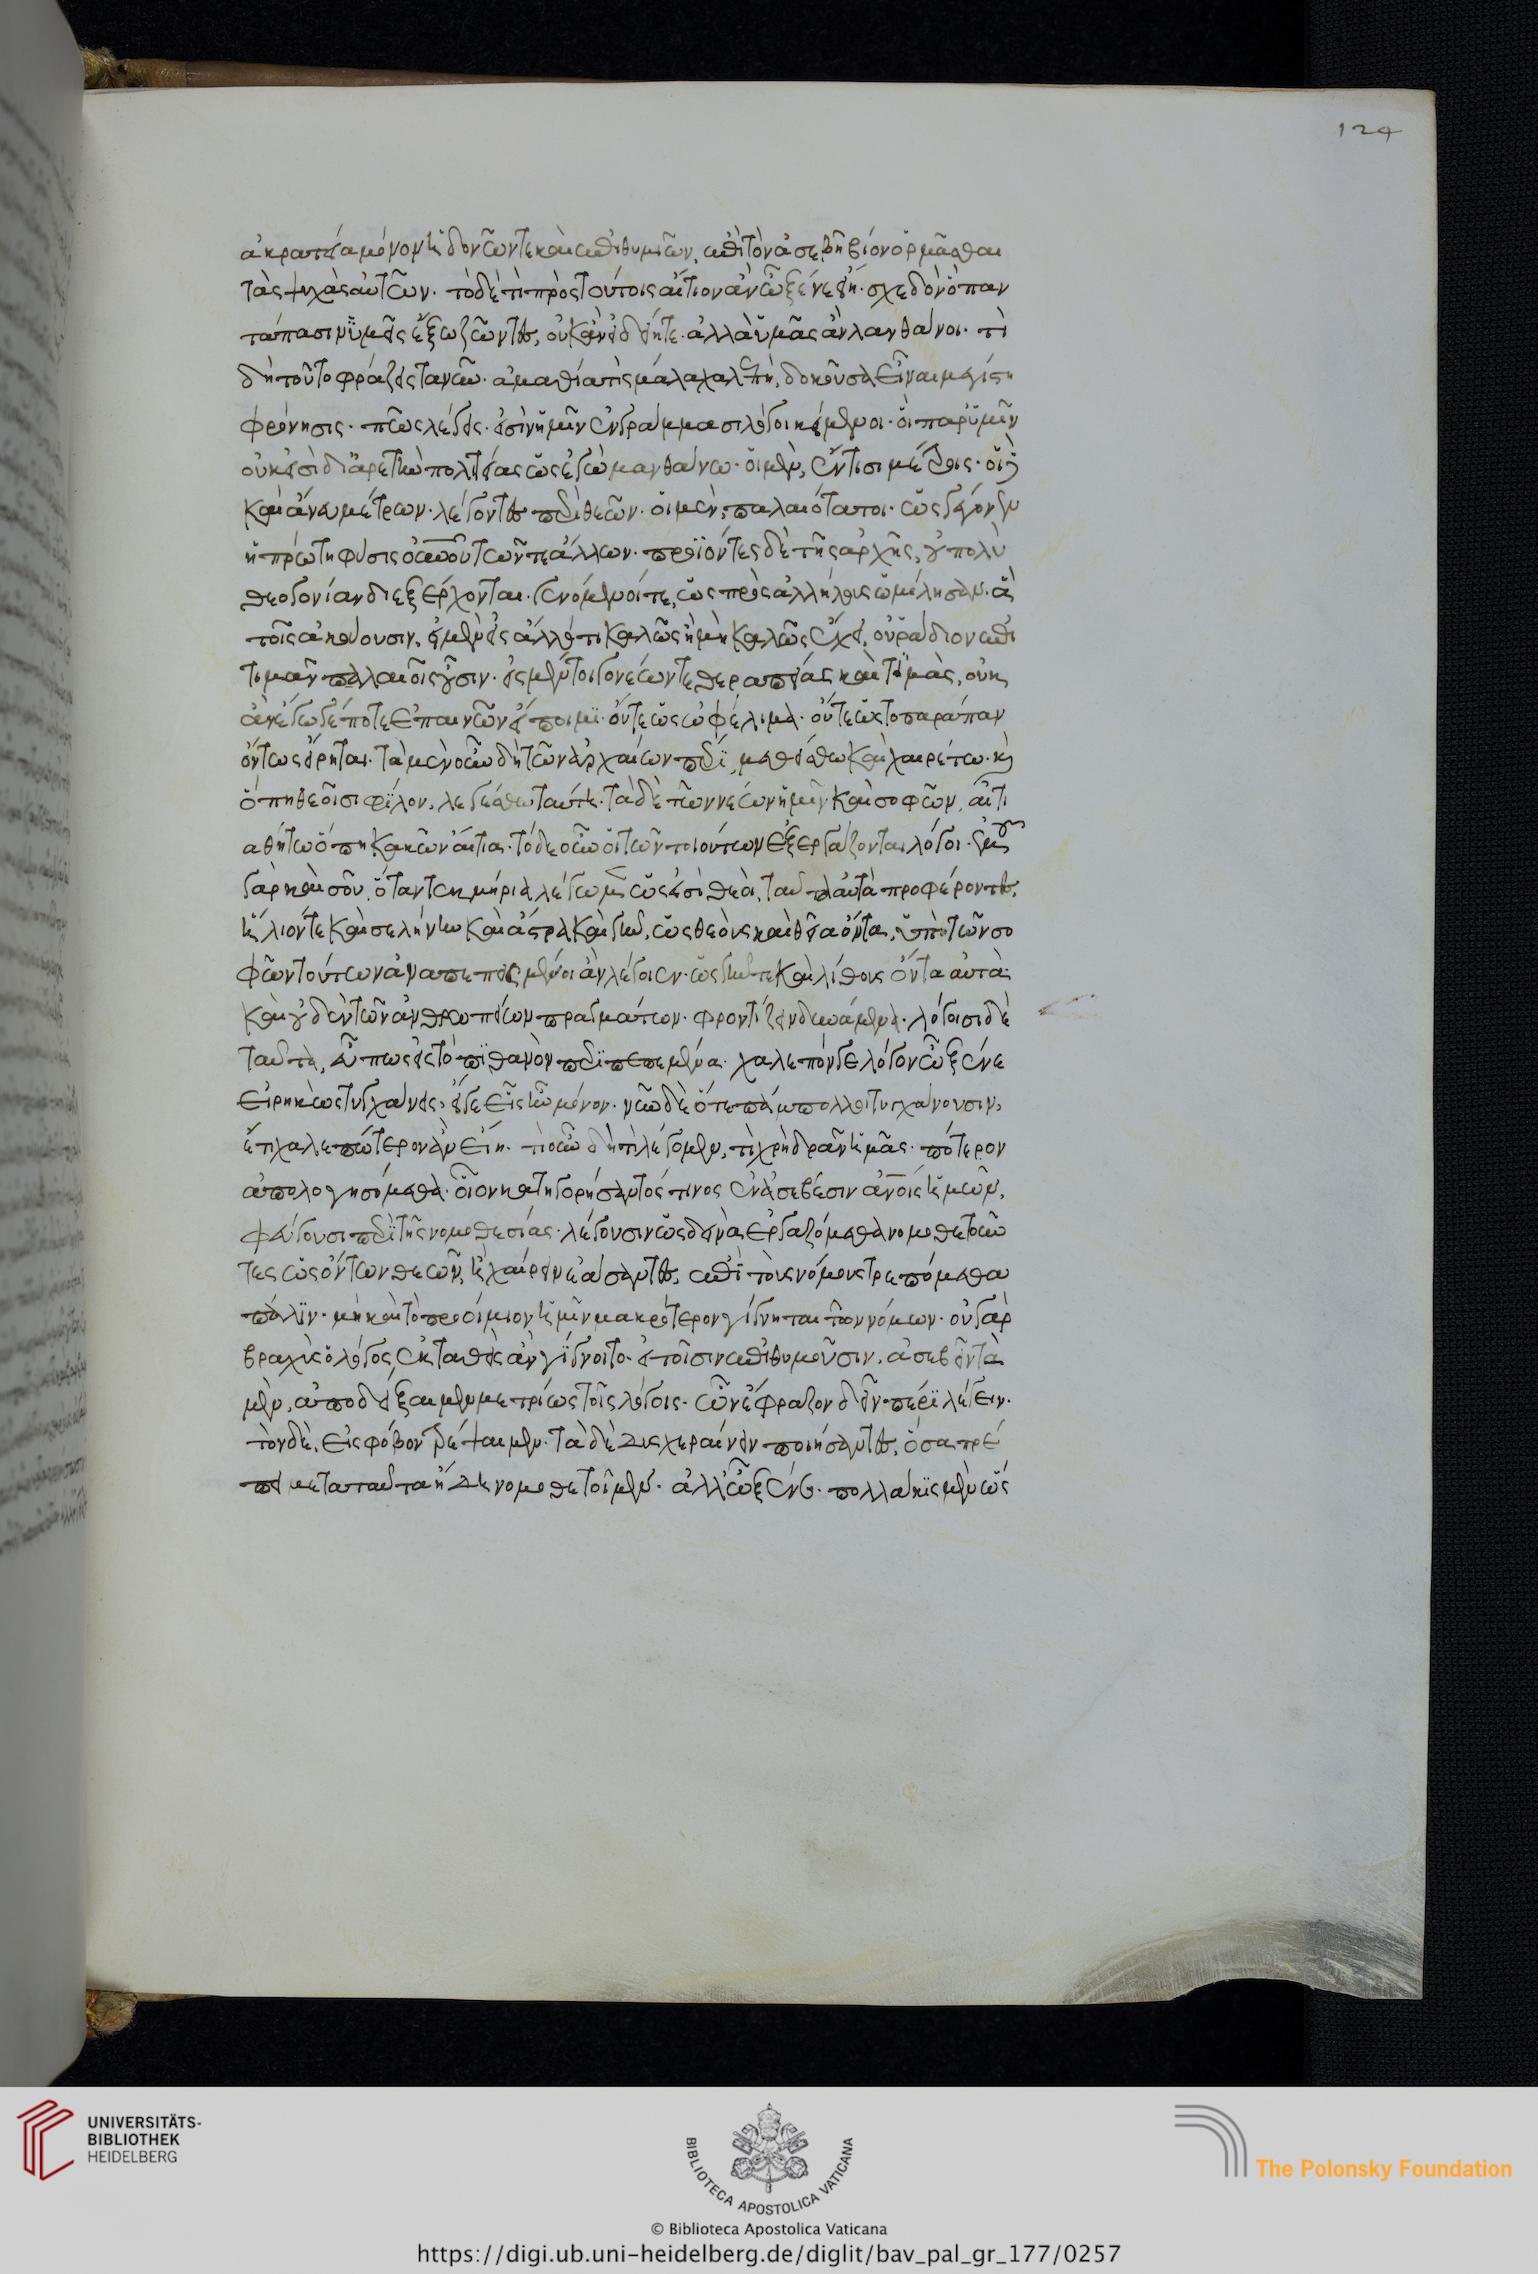 124
ἀκρατεία μόνον ἡδονῶν τε καὶ ἐπιθυμιῶν, ἐπὶ τὸν ἀσεβῆ βίον ὁρμᾶσθαι
τὰς ψυχὰς αὐτῶν. τὸ δὲ τί πρὸς τούτοις αἴτιον ἂν ὦ ξένε εἴη. σχεδὸν ὃ παν
τάπασιν ὑμεῖς ἔξω ζῶντες, οὐκ ἂν εἰδείητε. ἀλλὰ ὑμᾶς ἂν λανθάνοι. τί
δὴ τοῦτο φράζεις τανῦν. ἀμαθία τις μάλα χαλεπὴ, δοκοῦσα εἶναι μεγίστη
φρόνησις. πῶς λέγεις. εἰσὶν ἡμῖν ἐν γράμμασι λόγοι κείμενοι. οἳ παρ' ὑμῖν
οὐκ εἰσὶ δι' ἀρετὴν πολιτείας ὡς ἐγὼ μανθάνω. οἱ μὲν, ἔν τισι μέτροις. οἱ δὲ
καὶ ἄνευ μέτρων. λέγοντες περὶ θεῶν. οἱ μὲν, παλαιότατοι. ὡς γέγονεν
ἡ πρώτη φύσις οὐρανοῦ τῶν τε ἄλλων. προϊόντες δὲ τῆς ἀρχῆς, οὐ πολὺ
θεογονίαν διεξέρχονται. γενόμενοί τε, ὡς πρὸς ἀλλήλους ὡμίλησαν. ἃ
τοῖς ἀκούουσιν, εἰ μὲν εἰς ἄλλό τι καλῶς ἢ μὴ καλῶς ἔχει, οὐ ῥάδιον ἐπι
τιμᾶν παλαιοῖς οὖσιν. εἰς μέντοι γονέων τε θεραπείας καὶ τιμὰς, οὐκ
ἂν ἐγώ γέ ποτε ἐπαινῶν εἴποιμι. οὔτε ὡς ὠφέλιμα. οὔτε ὡς τὸ παράπαν
ὄντως εἴρηται. τὰ μὲν οὖν δὴ τῶν ἀρχαίων πέρι, μεθείσθω καὶ χαιρέτω. καὶ
ὅπῃ θεοῖσι φίλον, λεγέσθω ταύτῃ. τὰ δὲ τῶν νέων ἡμῖν καὶ σοφῶν, αἰτι
αθήτω ὅπῃ κακῶν αἴτια. τόδε οὖν οἱ τῶν τοιούτων ἐξεργάζονται λόγοι. ἐμοῦ
γὰρ καὶ σοῦ, ὅταν τεκμήρια λέγωμεν ὡς εἰσὶ θεοὶ, ταῦτα αὐτὰ προφέροντες,
ἥλιόν τε καὶ σελήνην καὶ ἄστρα καὶ γῆν, ὡς θεοὺς καὶ θεῖα ὄντα, ὑπὸ τῶν σο
φῶν τούτων ἀναπεπεισμένοι ἂν λέγοιεν. ὡς γῆν τε καὶ λίθους ὄντα αὐτὰ
καὶ οὐδὲν τῶν ἀνθρωπείων πραγμάτων. φροντίζειν δυνάμενα. λόγοισι δὲ
ταῦτα, εὖ πως εἰς τὸ πιθανὸν περιπεπεμμένα. χαλεπόν γε λόγον ὦ ξένε
εἰρηκὼς τυγχάνεις, εἴ γε εἷς ἦν μόνον. νῦν δὲ ὅτε πάμπολλοι τυγχάνουσιν,
ἔτι χαλεπώτερον ἂν εἴη. τί οὖν δὴ τί λέγομεν, τί χρὴ δρᾶν ἡμᾶς. πότερον
ἀπολογησόμεθα. οἷον κατηγορήσαντός τινος ἐν ἀσεβέσιν ἀνθρώποις ἡμῶν,
φεύγουσι περὶ τῆς νομοθεσίας. λέγουσιν ὡς δεινὰ ἐργαζόμεθα νομοθετοῦν
τες ὡς ὄντων θεῶν, ἢ χαίρειν ἐάσαντες, ἐπὶ τοὺς νόμους τρεπόμεθα
πάλιν. μὴ καὶ τὸ προοίμιον ἡμῖν μακρότερον γίγνηται τῶν νόμων. οὐ γὰρ
βραχὺς ὁ λόγος ἐκταθεὶς ἂν γίγνοιτο. εἰ τοῖσιν ἐπιθυμοῦσιν, ἀσεβεῖν τὰ
μὲν, ἀποδείξαιμεν μετρίως τοῖς λόγοις. ὧν ἔφραζον δεῖν πέρι λέγειν.
τὸν δὲ, εἰς φόβον τρέψαιμεν. τὰ δὲ δυσχεραίνειν ποιήσαντες, ὅσα πρέ
πει μετὰ ταῦτα ἤδη νομοθετοῖμεν. ἀλλ' ὦ ξένε. πολλάκις μὲν ὥς
UNIVERSITÄTS-
BIBLIOTHEK
HEIDELBERG
BIBLIOTECA APOSTOLICA VATICANA
The Polonsky Foundation
© Biblioteca Apostolica Vaticana
https://digi.ub.uni-heidelberg.de/diglit/bav_pal_gr_177/0257